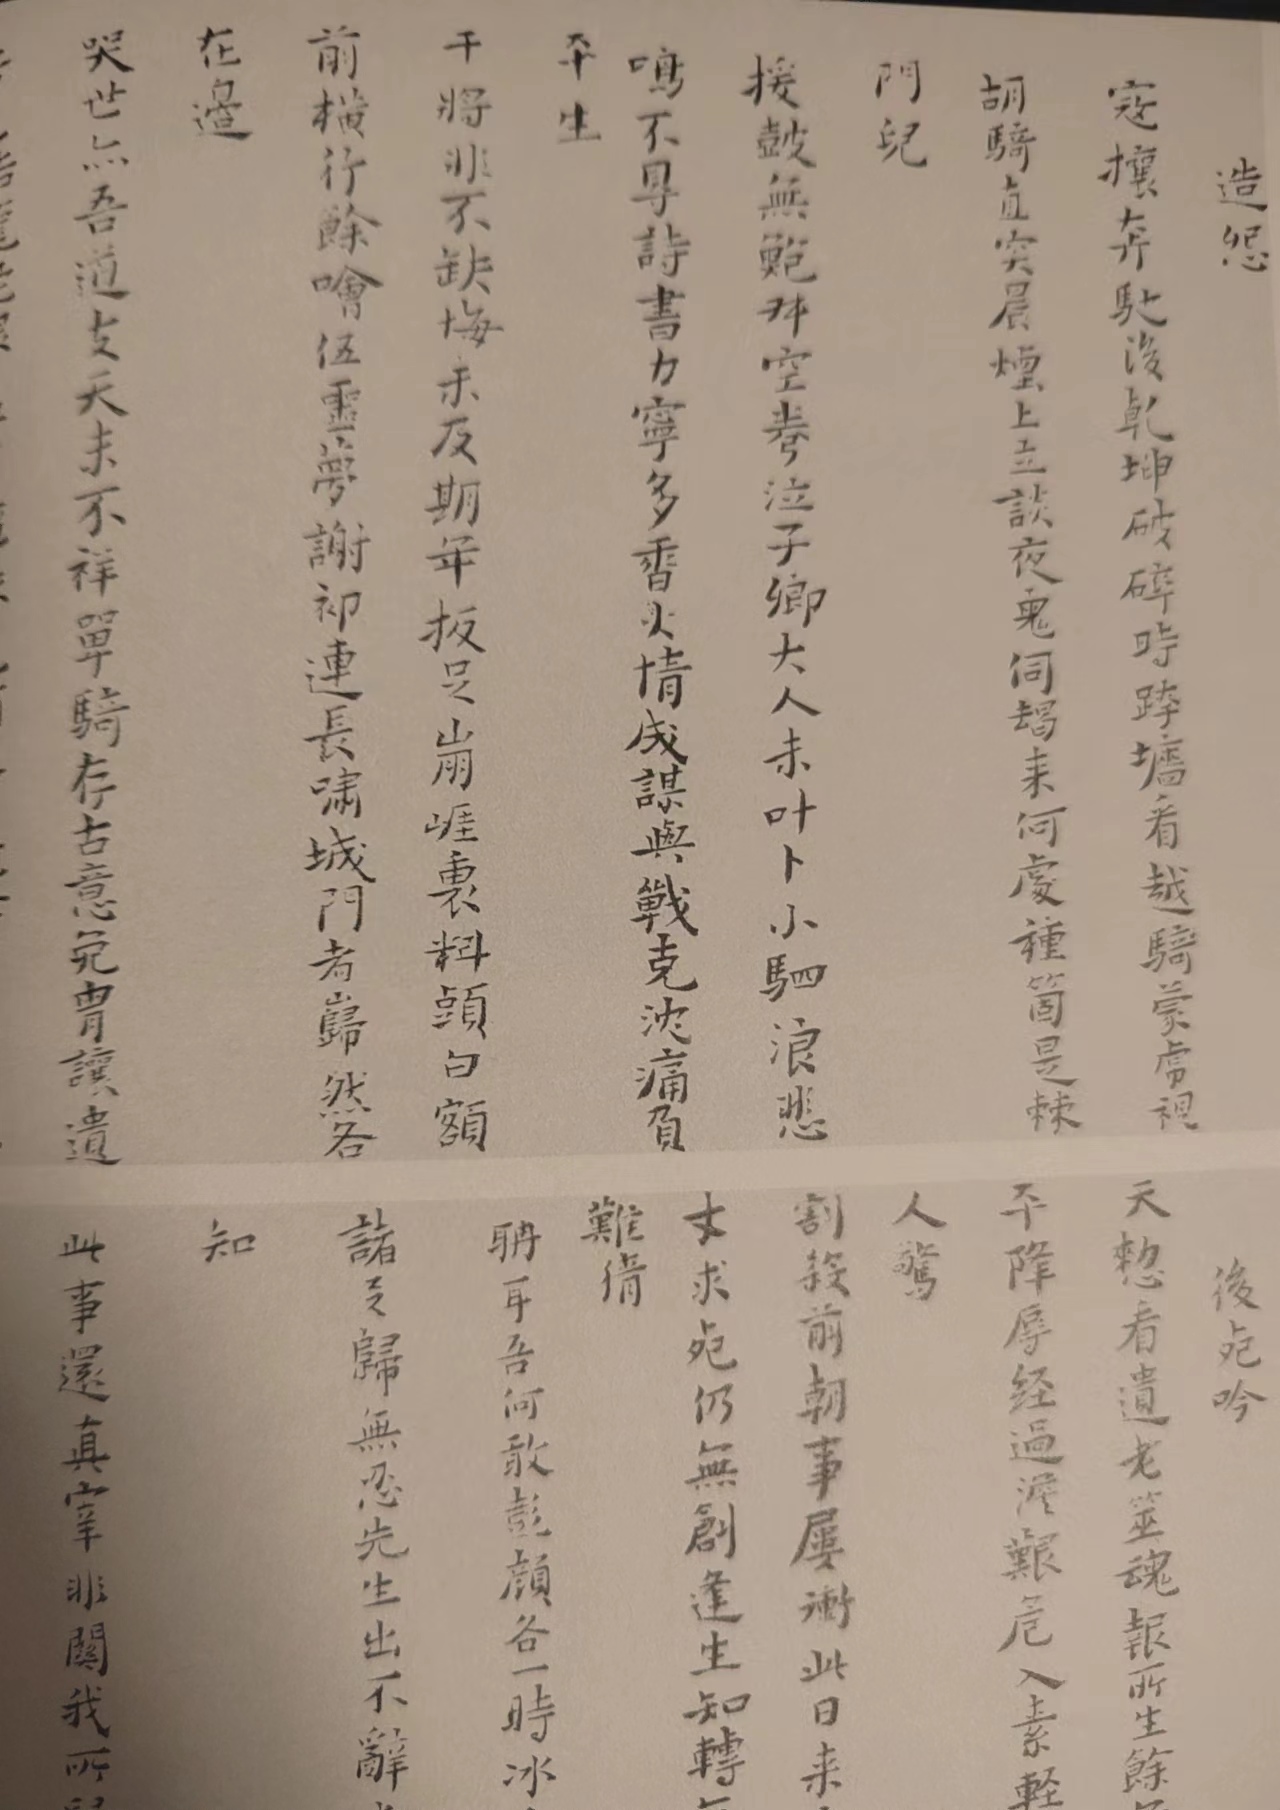 造怨
寇攘奔馳後乾坤破碎時踤墻看越騎蒙虜視
胡騎直突晨煙上立談夜鬼伺朅来何處種箇是棘
門兒
援鼓無鮑舛空拳泣子卿大人未叶卜小駟浪悲
鳴不得詩書力寧多香火情成謀與戰克沈痛負
平生
干將非不缺悔未及期年扳足崩崖裏料頭白額
前橫行餘噲伍靈夢謝祁連長嘯城門者巋然各
在邉
哭世無吾道支天未不祥單騎存古意免冑讓遺
後死吟
天憗看遺老筮魂報所生餘
平降辱经過澀艱危入素軽
人驚
割殺前朝事屢衝此日来
丈求死仍無創逢生知轉
難循
聃耳吾何敢彭顔各一時冰
諸之歸無忍先生出不辭
知
此事還真宰非關我所